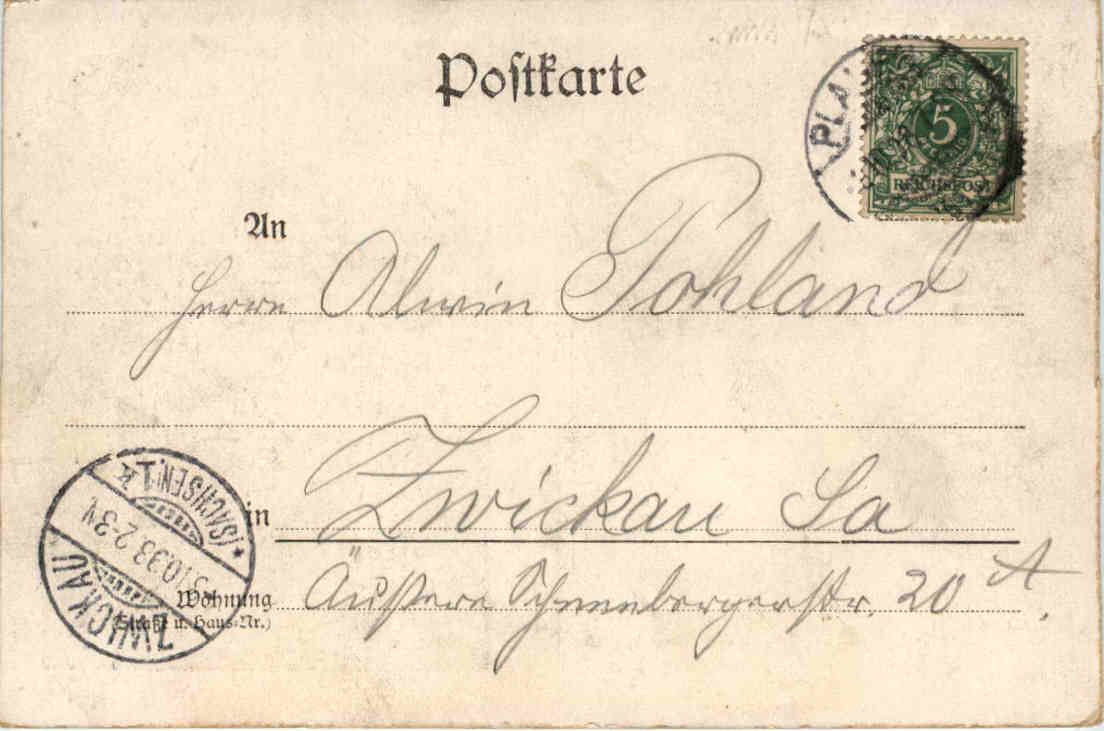 Postkarte
PLA
5
PFENNIG
REICHSPOST
An
Herrn Alwin Pohland
in Zwickau Sa
Wohnung Äußere Schneebergerstr. 20 A.
(Straße u. Haus-Nr.)
ZWICKAU
2-3 N
* (SACHSEN) 1 *